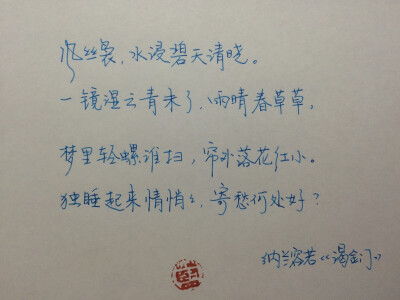 风丝袅，水浸碧天清晓。
一镜湿云青未了，雨晴春草草。
梦里轻螺谁扫，帘外落花红小。
独睡起来情悄悄，寄愁何处好？
纳兰容若《谒金门》